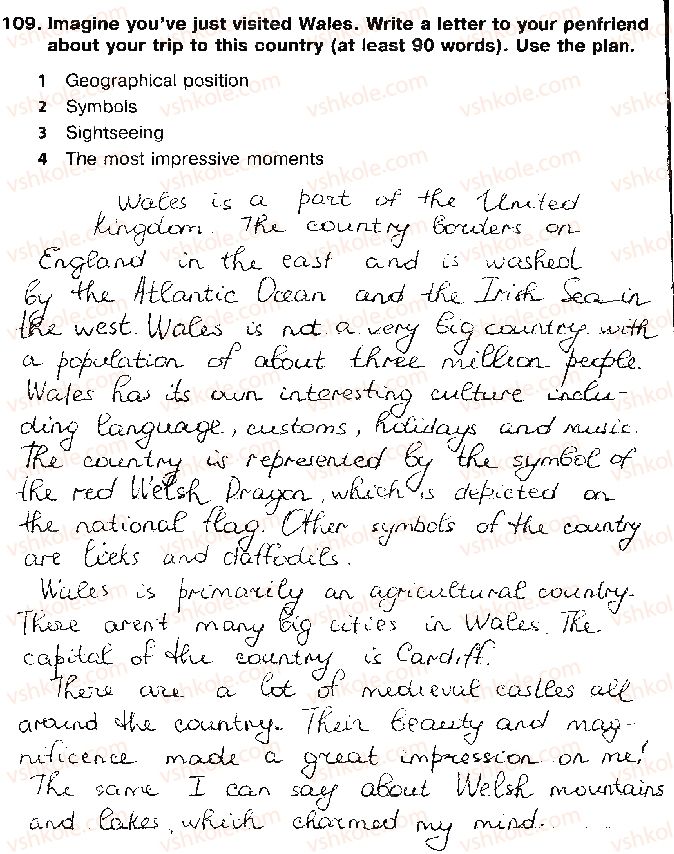 109. Imagine you've just visited Wales. Write a letter to your penfriend
about your trip to this country (at least 90 words). Use the plan.
1 Geographical position
2 Symbols
3 Sightseeing
4 The most impressive moments
Wales is a part of the United
Kingdom. The country borders on
England in the east and is washed
by the Atlantic Ocean and the Irish Sea in
the west. Wales is not a very big country with
a population of about three million people.
Wales has its own interesting culture inclu-
ding language, customs, holidays and music.
The country is represented by the symbol of
the red Welsh Dragon, which is depicted on
the national flag. Other symbols of the country
are lieks and daffodils.
Wales is primarily an agricultural country.
There aren't many big cities in Wales. The
capital of the country is Cardiff.
There are a lot of medieval castles all
around the country. Their beauty and mag-
nificence made a great impression on me!
The same I can say about Welsh mountains
and lakes, which charmed my mind.
vshkole.com